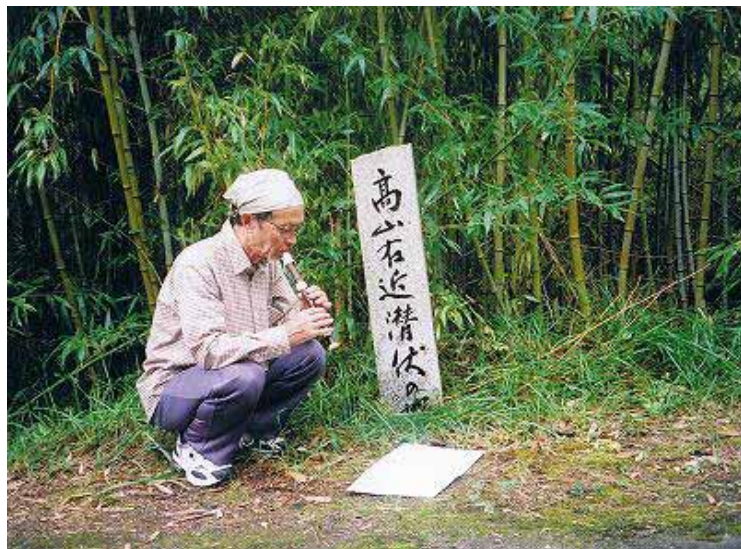 髙山右近潜伏の